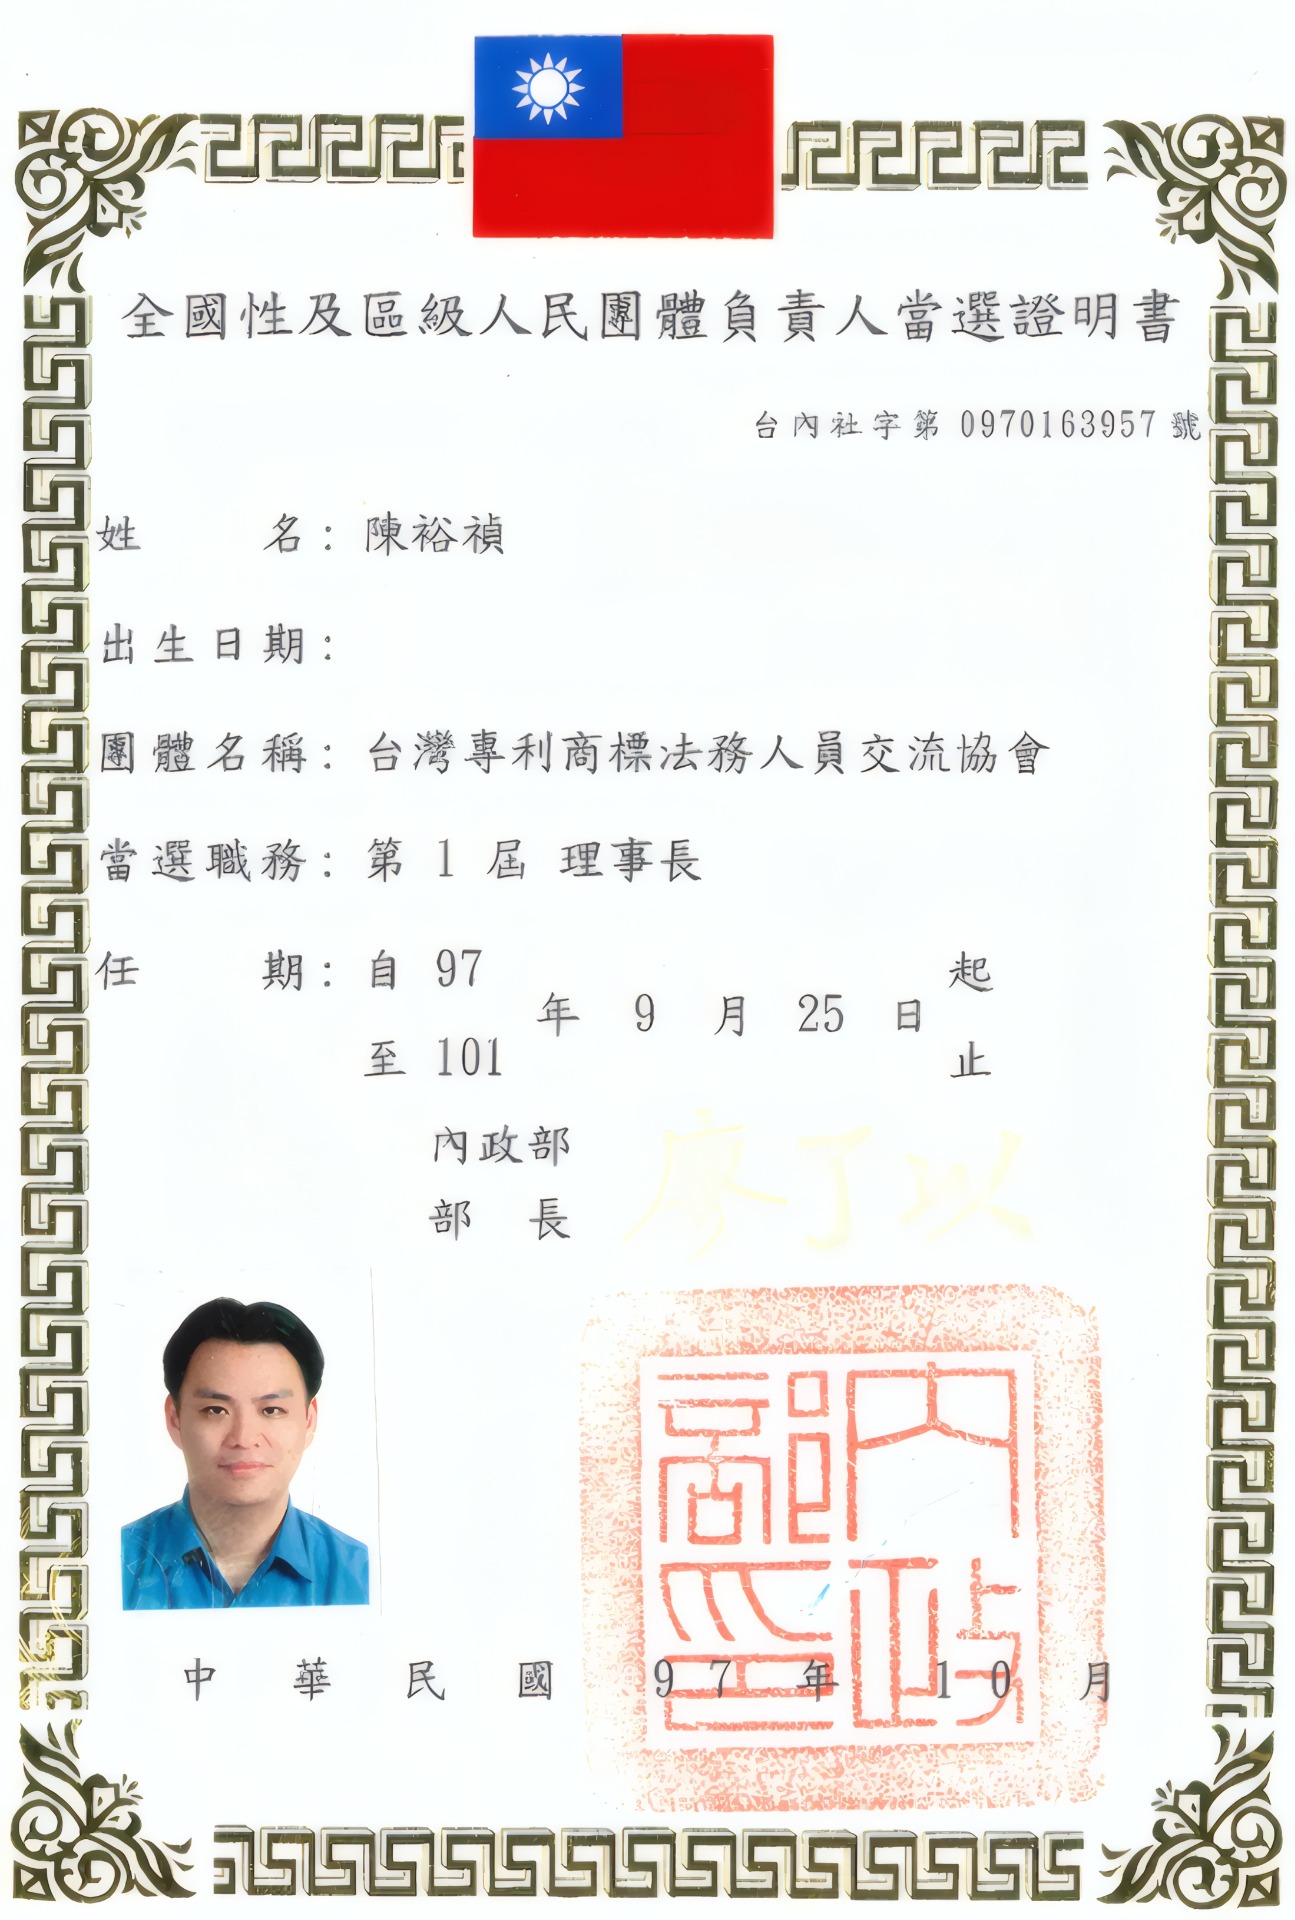 全國性及區級人民團體負責人當選證明書
台內社字第 0970163957 號
姓名：陳裕禎
出生日期：
團體名稱：台灣專利商標法務人員交流協會
當選職務：第 1 屆 理事長
任期：自 97 年 9 月 25 日 起
至 101 止
內政部
部長 廖了以
內政部印
中華民國 97 年 10 月